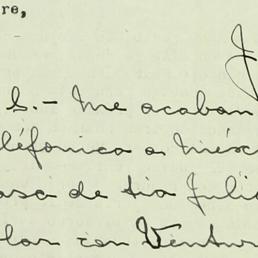 re,
J
S.- Me acaban
léfonica a Méxic
asa de tia Julia
lar con Ventur